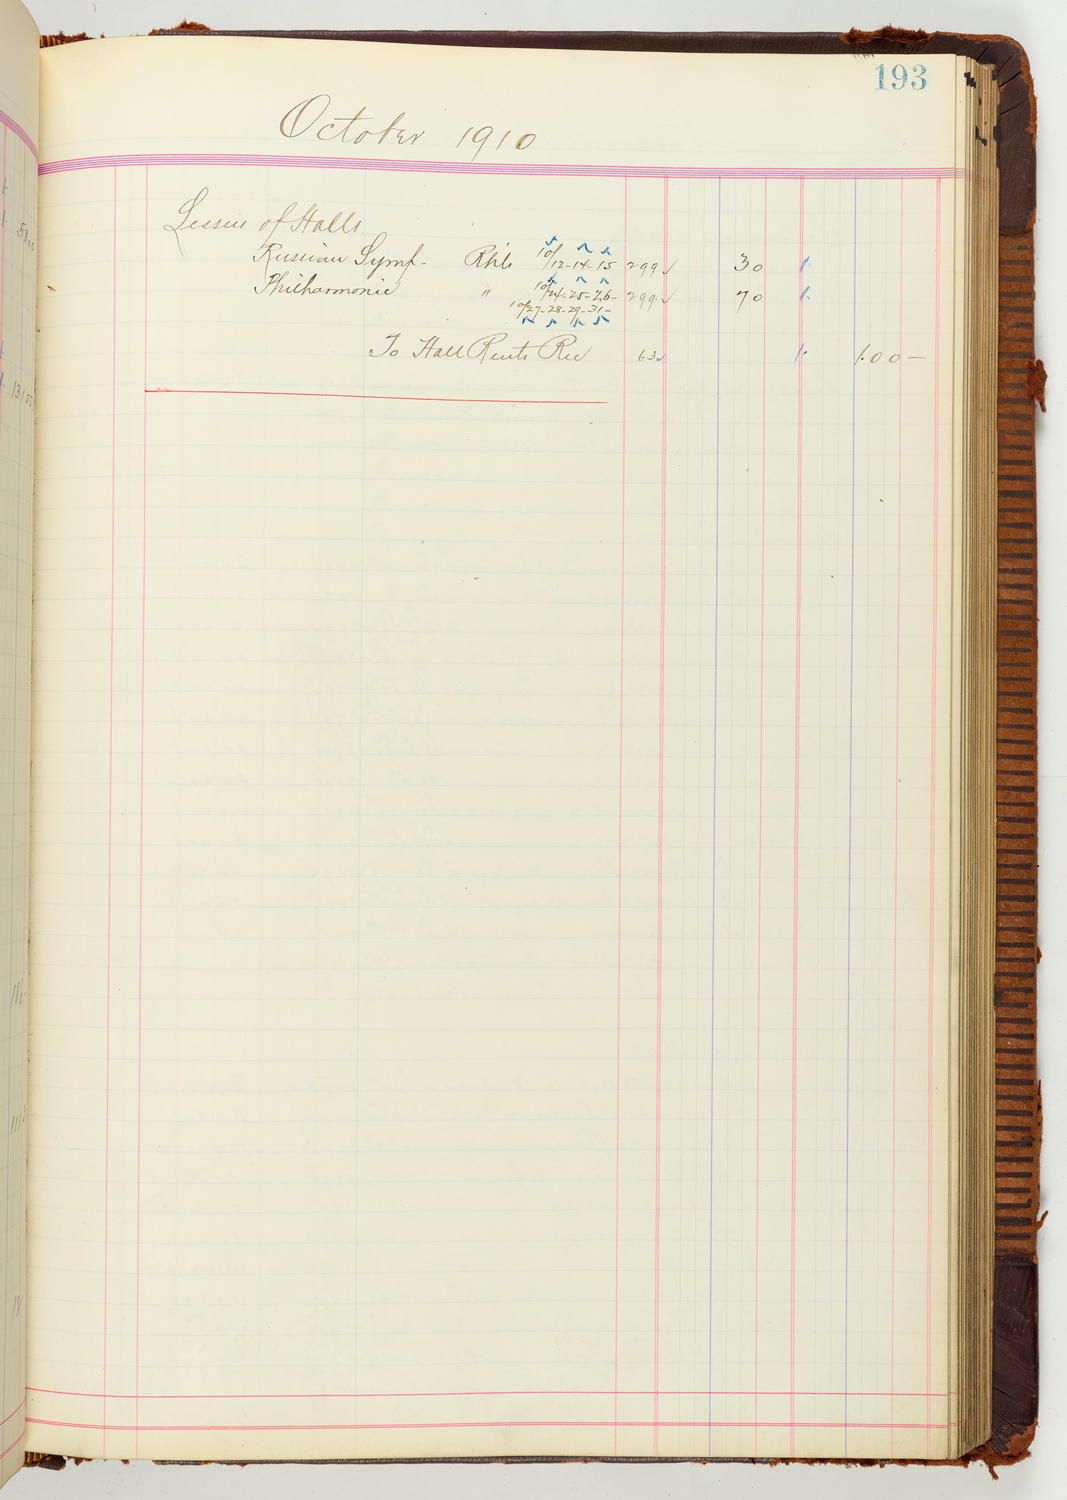 193
October 1910
Lessees of Halls
Russian Symp- Rhls 10/12-14-15 299 ✓ 30
Philharmonic " 10/24-25-26- 299 ✓ 70
10/27-28-29-31-
To Hall Rents Rec 63 ✓ 100 —